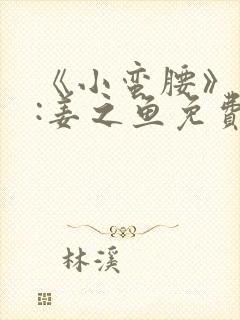 《小蛮腰》
:姜之鱼免費
林溪